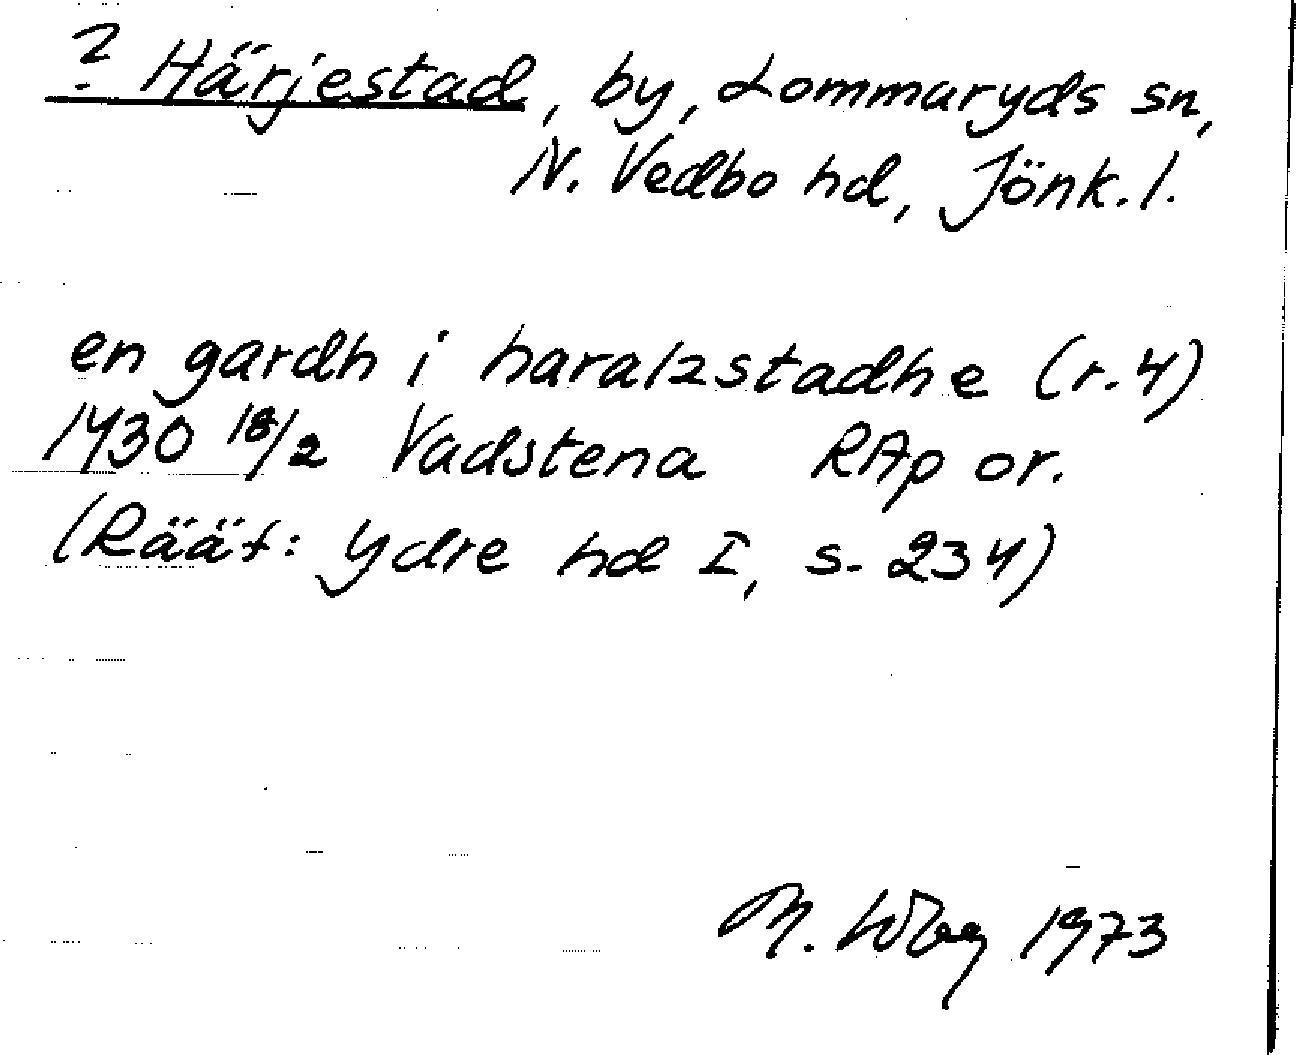 ? Härjestad, by, Lommaryds sn,
N. Vedbo hd, Jönk. l.
en gardh i haralzstadhe (r. 4)
1430 18/2 Vadstena RAp or.
(Räät: Ydre hd I, s. 234)
M. 1973